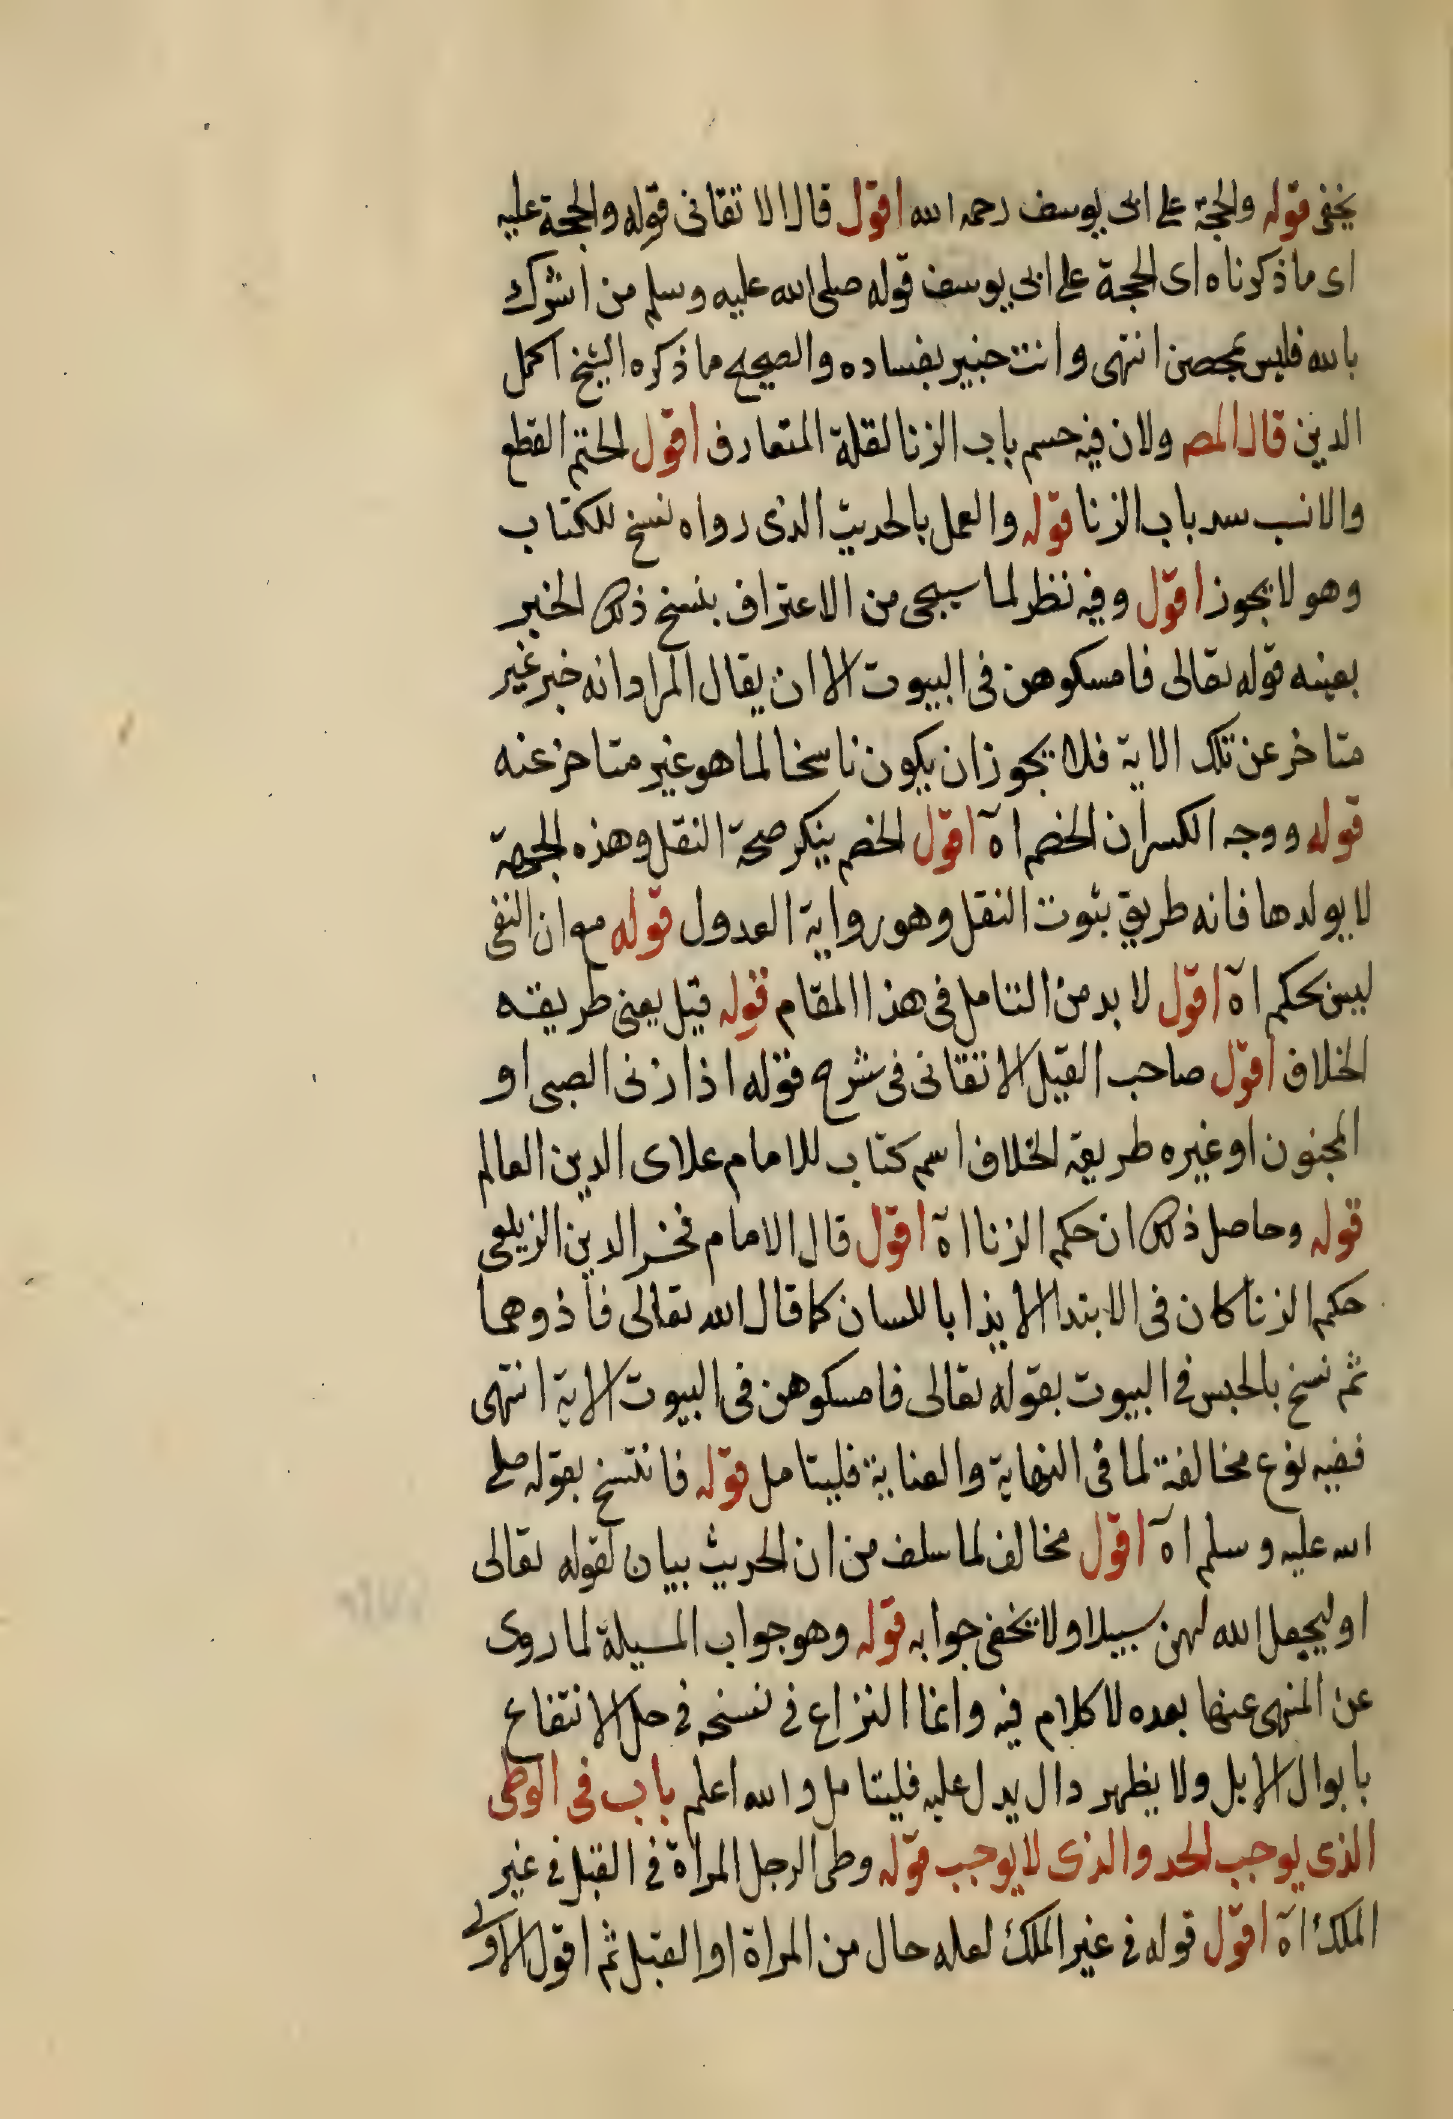 يخفى قوله والحجة على ابى يوسف رحمه الله اقول قال الاتقانى قوله والحجة عليه
اى ما ذكرناه اى الحجة على ابى يوسف قوله صلى الله عليه وسلم من اشرك
بالله فليس بمحصن انتهى وانت خبير بفساده والصحيح ما ذكره الشيخ اكمل
الدين قال المصـ ولان فيه حسم باب الزنا لقلة المتعارف اقول الحتم القطع
والانسب سد باب الزنا قوله والعمل بالحديث الذى رواه نسخ للكتاب
وهو لا يجوز اقول وفيه نظر لما سيجى من الاعتراف بنسخ ذلك الخبر
بعينه قوله تعالى فامسكوهن فى البيوت الا ان يقال المراد انه خبر غير
متاخر عن تلك الاية فلا يجوز ان يكون ناسخا لما هو غير متاخر عنه
قوله ووجه الكسر ان الخصم اه اقول الخصم ينكر صحة النقل وهذه الجهة
لا يولدها فانه طريق بثوت النقل وهو رواية العدول قوله مع ان النفى
ليس بحكم اه اقول لا بد من التامل فى هذا المقام قوله قيل يعنى طريقته
الخلاف اقول صاحب القيل الاتقانى فى شرح قوله اذا زنى الصبى او
المجنون او غيره طريقة الخلاف اسم كتاب للامام علاى الدين العالم
قوله وحاصل ذلك ان حكم الزنا اه اقول قال الامام فخر الدين الزيلعى
حكم الزنا كان فى الابتدا الايذا باللسان كما قال الله تعالى فآذوهما
ثم نسخ بالحبس فى البيوت بقوله تعالى فامسكوهن فى البيوت الاية انتهى
ففيه نوع مخالفة لما فى النهاية والعناية فليتامل قوله فانتسخ بقوله صلى
الله عليه وسلم اه اقول مخالف لما سلف من ان الحديث بيان لقوله تعالى
او ليجعل الله لهن سبيلا ولا يخفى جوابه قوله وهو جواب المسيلة لما روى
عن المنهى عنها بعده لا كلام فيه وانما النزاع فى نسخه فى حل الانتفاع
بابوال الابل ولا يظهر دال يدل عليه فليتامل والله اعلم باب فى الوطى
الذى يوجب الحد والذى لا يوجب قوله وطى الرجل المراة فى القبل فى غير
الملك اه اقول قوله فى غير الملك لعله حال من المراة او القبل ثم اقول الاولى